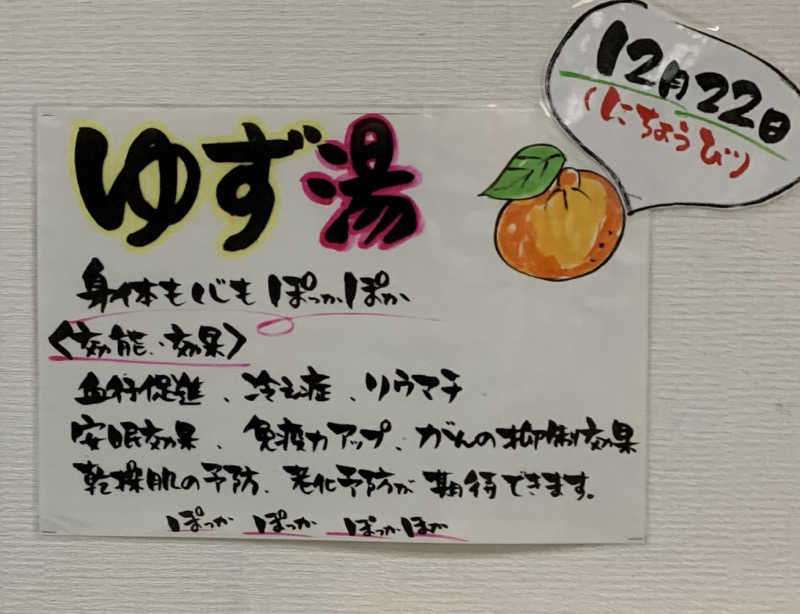 12月22日
(にちようび)
ゆず湯
身体も心も ぽっかぽか
〈効能・効果〉
血行促進、冷え症、リウマチ
安眠効果、免疫力アップ、がんの抑制効果
乾燥肌の予防、老化予防が期待できます。
ぽっか ぽっか ぽっかぽか